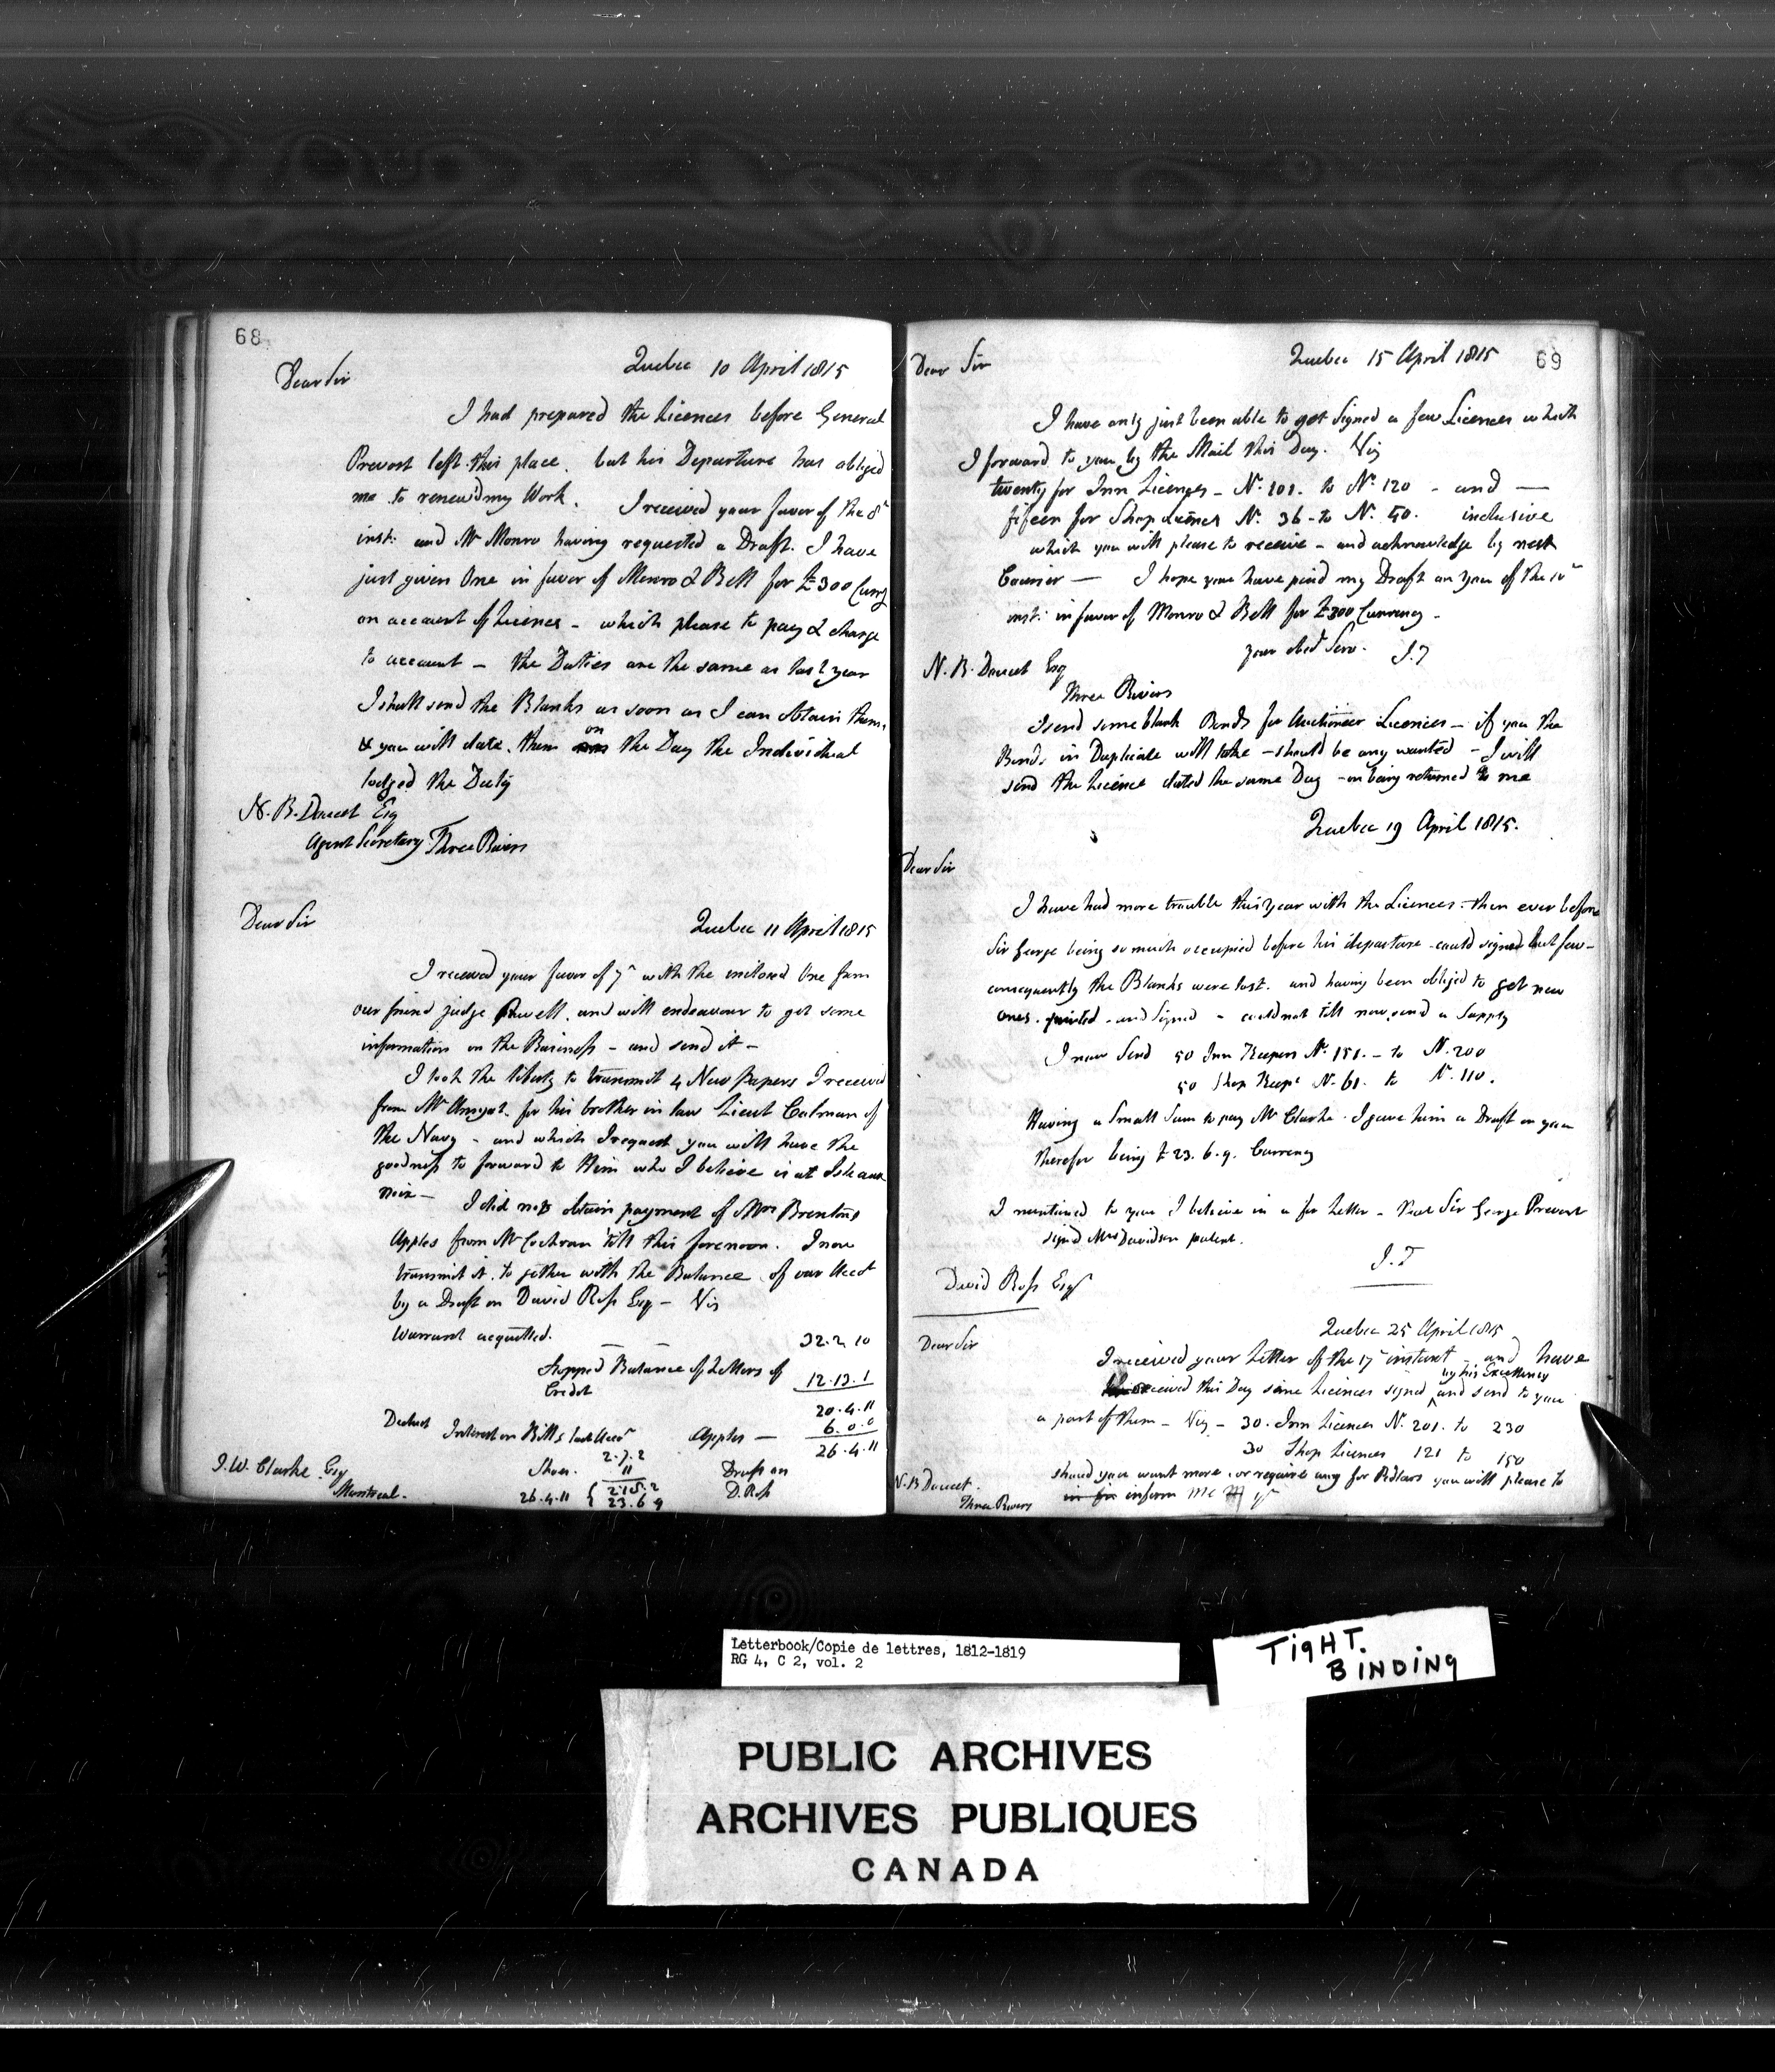 68
Quebec 10 April 1815
Dear Sir
I had prepared the Licences before General
Prevost left this place. but his Departure has obliged
me to renew'd my Work. I received your favor of the 8th
inst: and Mr Monro having requested a Draft. I have
just given One in favor of Monro & Bell for £300 Curry
on account of Licences - which please to pay & charge
to account - the Duties are the same as last year
I shall send the Blanks as soon as I can obtain them,
& you will date. them on the Day the Individual
lodged the Duty
N. B. Doucet Esq
Agent Secretary Three Rivers
Quebec 11 April 1815
Dear Sir
I received your favor of 7th with the inclosed One from
our friend judge Powell. and will endeavour to get some
information on the Business - and send it -
I took the liberty to transmit 4 New Papers I received
from Mr Amyot. for his brother in law Lieut Colman of
the Navy - and which I request you will have the
goodness to forward to Him who I believe is at Isle aux
Noix - I did not obtain payment of Mrs Brentons
Apples from Mr Cochran till this forenoon. I now
transmit it. to gether with the Balance of our Acct
by a Draft on David Ross Esq - Viz
Warrant acquitted. 32.2.10
Stopped Balance of Letters of
Credit 12.13.1
20.4.11
Deduct Interest on Bills last Acct Apples - 6.0.0
2.7.2 26.4.11
Shoes. 11 Draft on
26.4.11 { 2.18.2 D. Ross
23.6.9
J. W. Clarke Esq
Montreal.
69
Quebec 15 April 1815
Dear Sir
I have only just been able to get Signed a few Licences which
I forward to you by the Mail this Day. Viz
twenty for Inn Licences - No. 101. to No. 120 - and -
fifteen for Shop Licences No. 36 - to No. 50. inclusive
which you will please to receive - and acknowledge by next
Courier - I hope you have paid my Draft on you of the 10th
inst: in favor of Monro & Bell for £300 Currency -
your obed Serv. J.T
N. B. Doucet Esq
Three Rivers
I send some blank Bonds for Auctioneer Licences - if you the
Bonds in Duplicate will take - should be any wanted - I will
send the Licence dated the same Day - on being returned to me
Quebec 19 April 1815.
Dear Sir
I have had more trouble this Year with the Licences. then ever before
Sir George being so much occupied before his departure - could signed but few -
consequently the Blanks were lost. and having been obliged to get new
ones. printed. and Signed - could not till now, send a Supply
I now Send 50 Inn Keepers No. 151. - to No. 200
50 Shop Keeps No. 61. to No. 110.
Having a Small Sum to pay Mr Clarke. I gave him a Draft on you
therefor being £23.6.9. Currency
I mentioned to you I believe in a for Letter - that Sir George Prevost
signd Mrs Davidson patent.
J.T
David Ross Esqr
Quebec 25 April 1815
Dear Sir
I received your Letter of the 17th instant - and have
by his Excellency
received this Day some Licences signed ^ and send to you
a part of them - Viz - 30. Inn Licences No. 201. to 230
30 Shop Licences 121 to 150
should you want more. or require any for Pedlars you will please to
inform me
N. B Doucet.
Three Rivers
Letterbook/Copie de lettres, 1812-1819
RG 4, C 2, vol. 2
TIGHT.
BINDING
PUBLIC ARCHIVES
ARCHIVES PUBLIQUES
CANADA